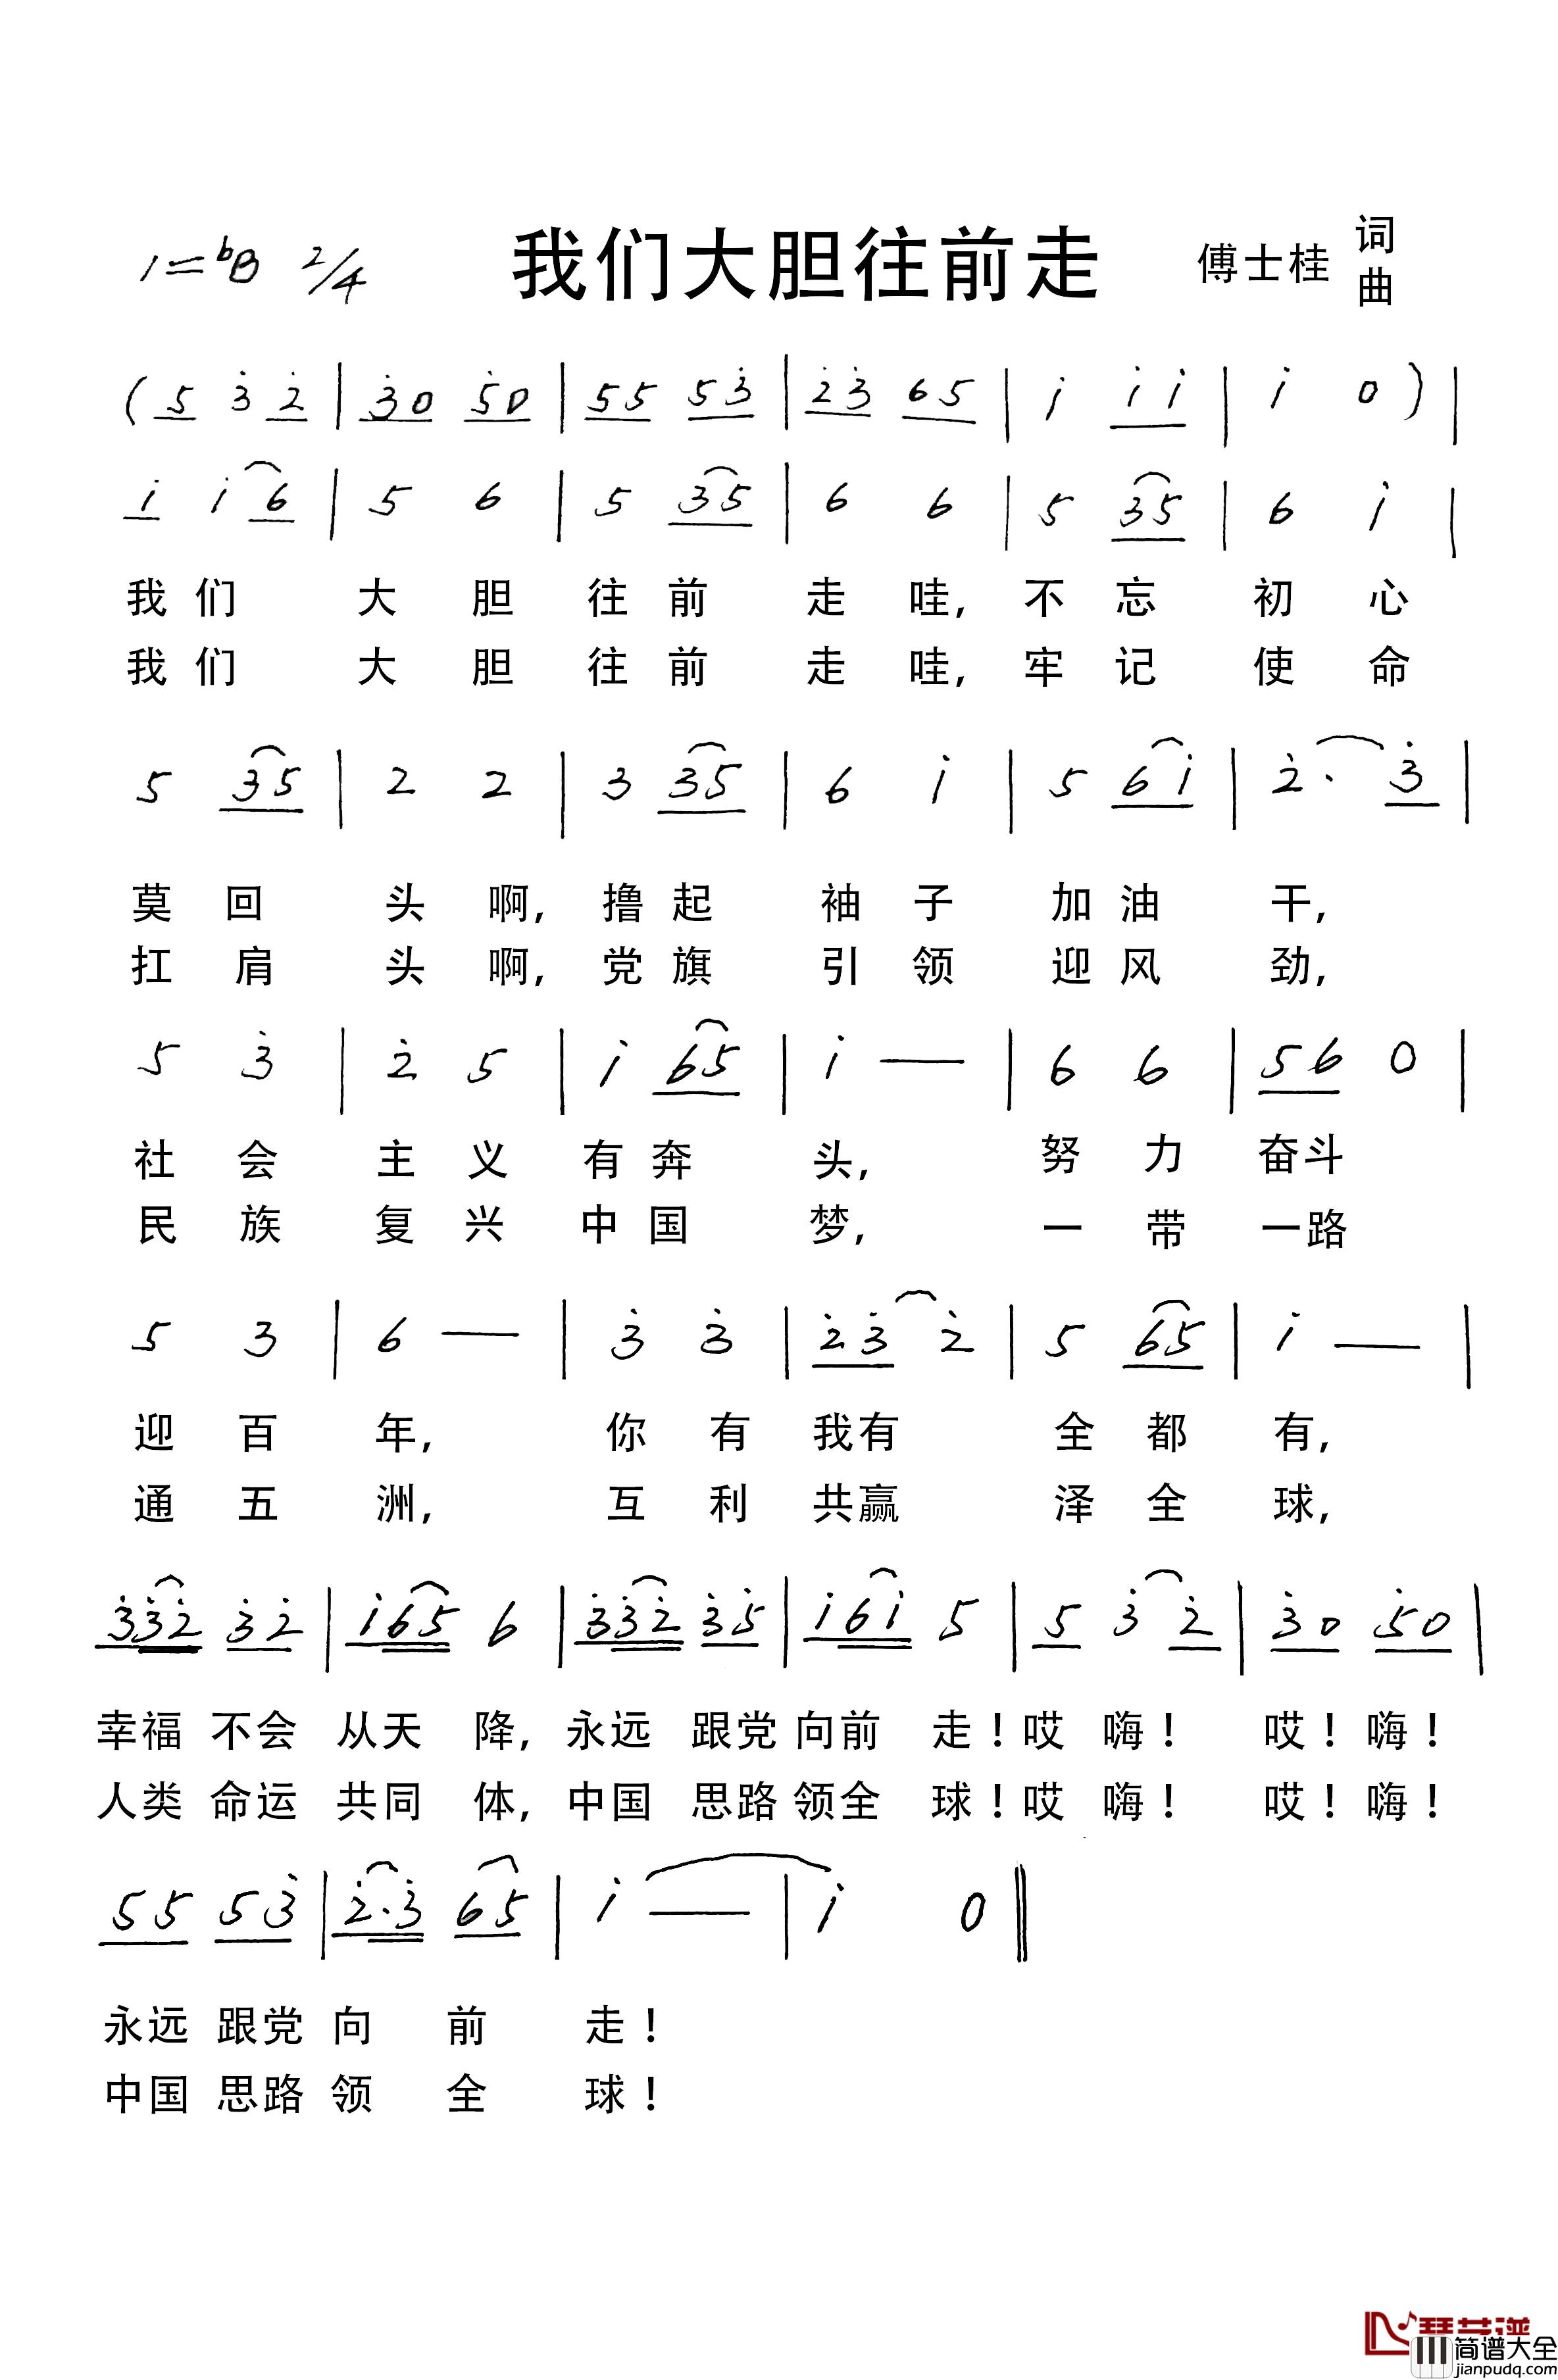 1=bB 2/4 我们大胆往前走 傅士桂 词曲
(5 3̇ 2̇ | 3̇0 5̇0 | 55 53̇ | 2̇3̇ 65 | 1̇ 1̇1̇ | 1̇ 0) |
1̇ 1̇6 | 5 6 | 5 35 | 6 6 | 5 35 | 6 1̇ |
我们 大 胆 往 前 走 哇, 不 忘 初 心
我们 大 胆 往 前 走 哇, 牢 记 使 命
5 35 | 2 2 | 3 35 | 6 1̇ | 5 61̇ | 2̇· 3̇ |
莫 回 头 啊, 撸 起 袖 子 加 油 干,
扛 肩 头 啊, 党 旗 引 领 迎 风 劲,
5 3̇ | 2̇ 5 | 1̇ 65 | 1̇ — | 6 6 | 56 0 |
社 会 主 义 有 奔 头, 努 力 奋斗
民 族 复 兴 中 国 梦, 一 带 一路
5 3 | 6 — | 3̇ 3̇ | 2̇3̇ 2̇ | 5 65 | 1̇ — |
迎 百 年, 你 有 我有 全 都 有,
通 五 洲, 互 利 共赢 泽 全 球,
3̇3̇2̇ 3̇2̇ | 1̇65 6 | 3̇3̇2̇ 3̇5̇ | 1̇61̇ 5 | 5 3̇ 2̇ | 3̇0 5̇0 |
幸福 不会 从天 降, 永远 跟党 向前 走！哎 嗨！ 哎！嗨！
人类 命运 共同 体, 中国 思路 领全 球！哎 嗨！ 哎！嗨！
55 53̇ | 2̇·3̇ 65 | 1̇ — | 1̇ 0 ‖
永远 跟党 向 前 走！
中国 思路 领 全 球！
琴艺谱
简谱大全
jianpudq.com